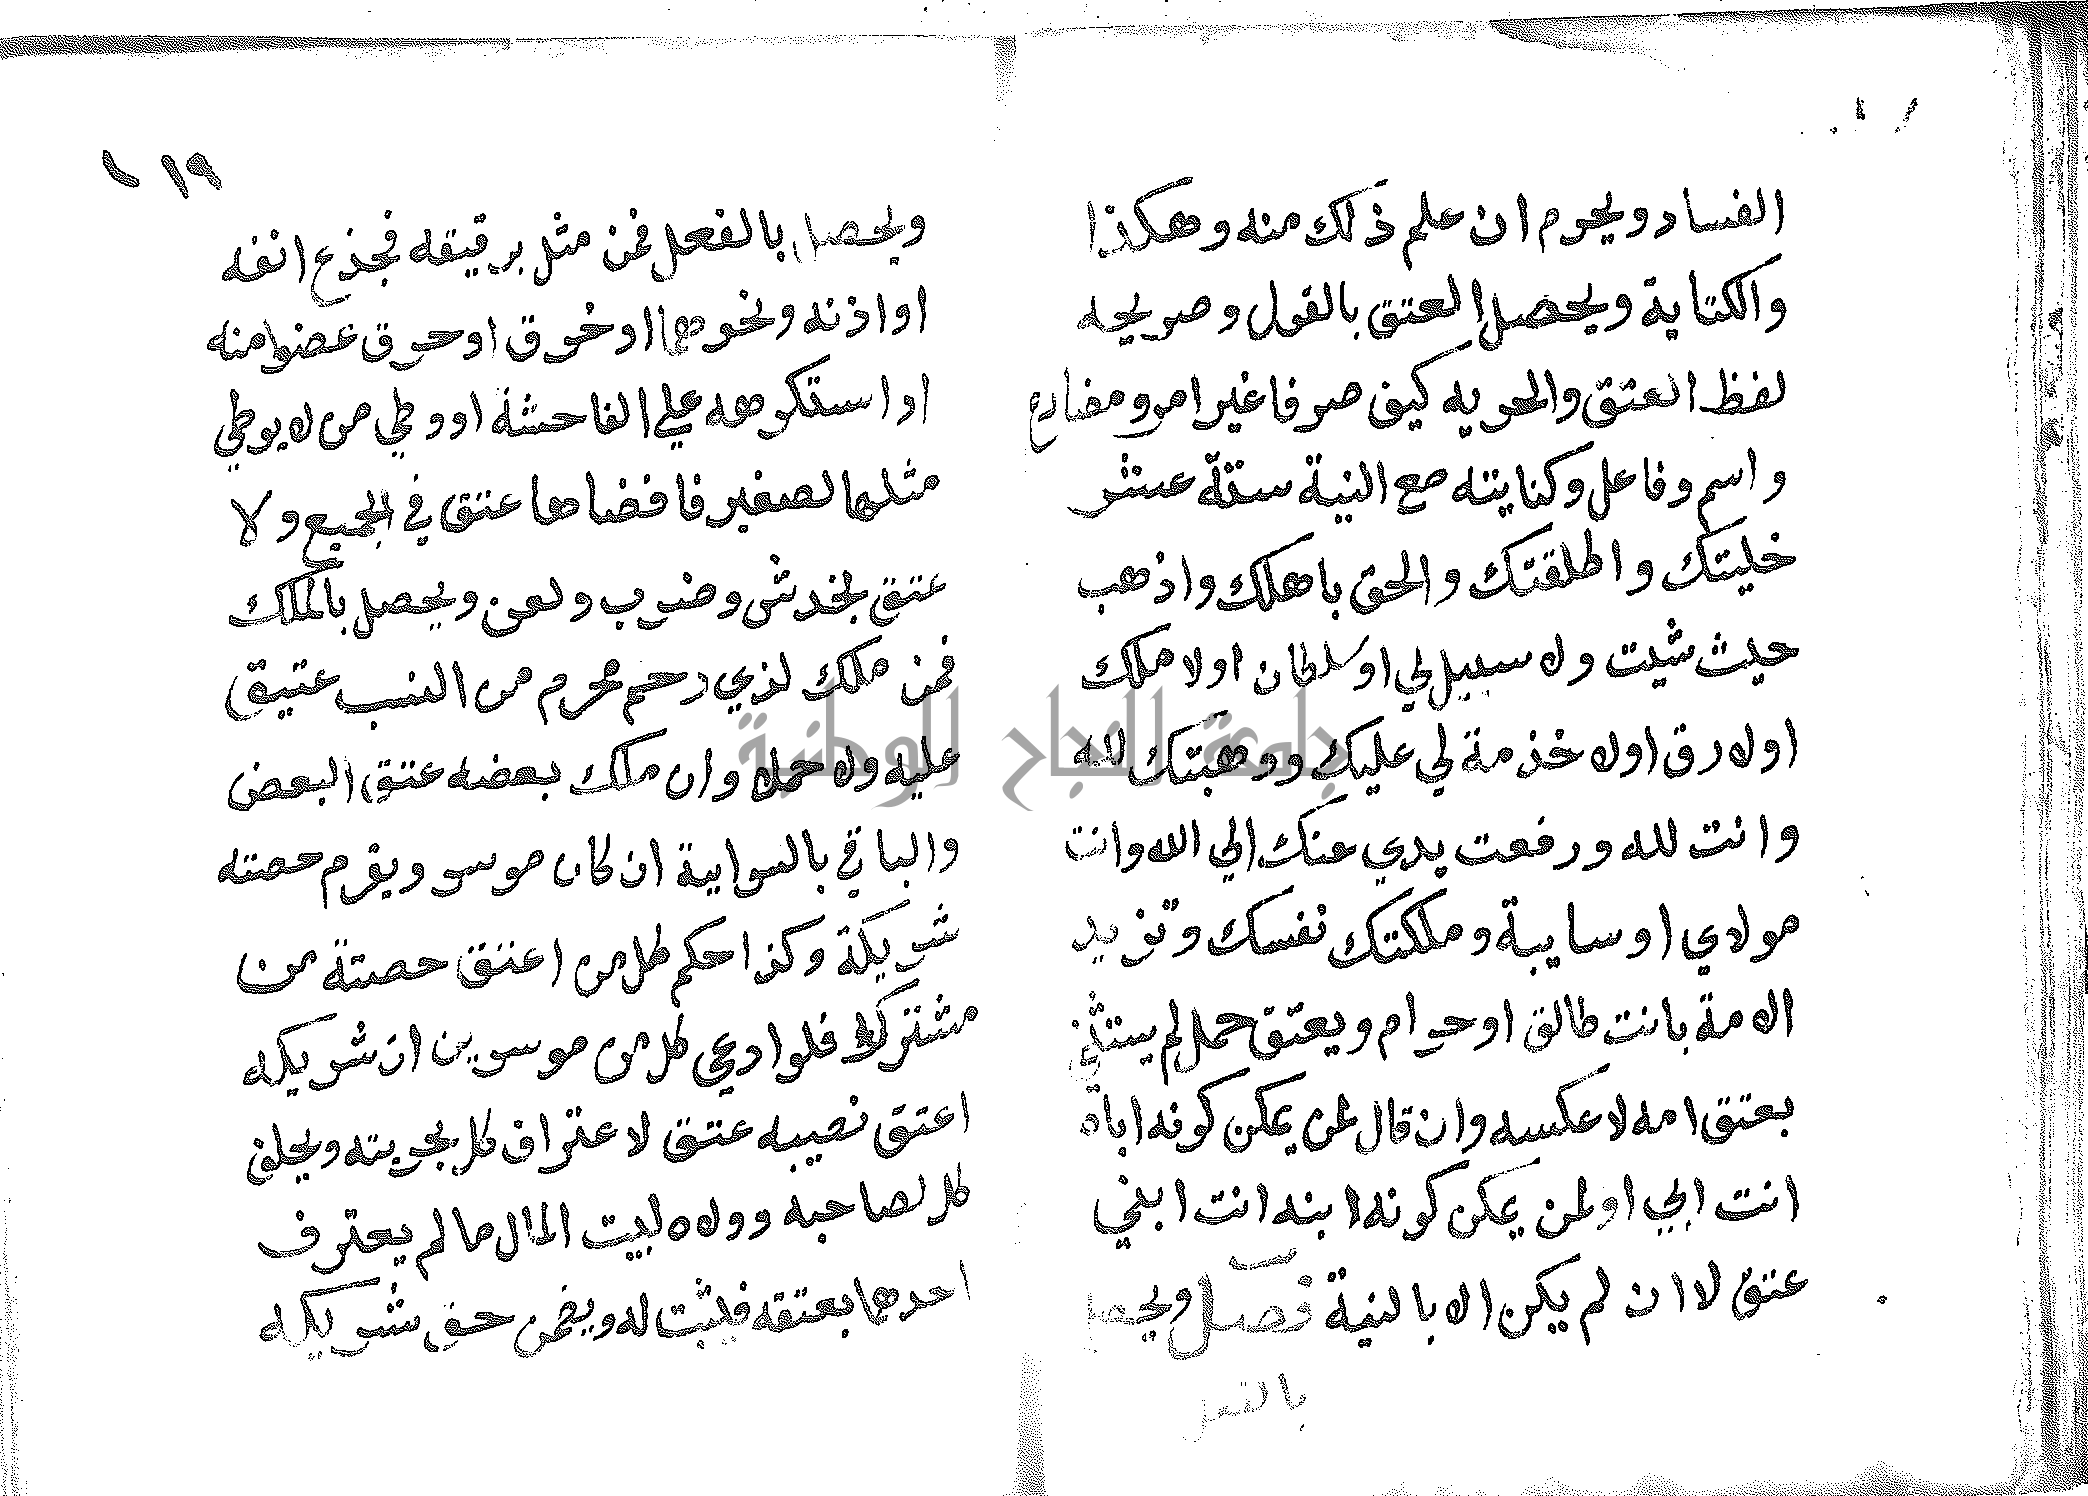 الفساد ويحرم ان علم ذلك منه وهكذا
والكتابة ويحصل العتق بالقول وصريحه
لفظ العتق والحريه كيف صرفا غير امر ومضارع
واسم وفاعل وكنايته مع النية ستة عشر
خليتك واطلقتك والحق باهلك واذهب
حيث شيت ولا سبيل لي او سلطان اولا ملك
اولا رق اولا خذمة لي عليك ووهبتك لله
وانت لله ورفعت يدي عنك الي الله وانت
مولاي اوسايبة وملكتك نفسك وتزيد
الامة بانت طالق اوحرام ويعتق حمل لم يستثني
بعتق امه لا عكسه وان قال لمن يمكن كونه اباه
انت ابي اولمن يمكن كونه ابنه انت ابني
عتق لا ان لم يكن الا بالنية فصل ويحصل
بالفعل
١١٩
ويحصل بالفعل فمن مثل برقيقه فجذع انفه
اواذنه ونحوهما اوخرق اوحرق عضوا منه
او استكرهه علي الفاحشة اووطي من لا يوطي
مثلها لصغير فافضاها عتق في الجميع ولا
عتق بخدش وضرب ولعن ويحصل بالملك
فمن ملك لذي رحم محرم من النسب عتيق
عليه ولا حملا وان ملك بعضه عتق البعض
والباقي بالسراية ان كان موسر ويغرم حصته
شريكة وكذا حكم كل من اعتق حصتة من
مشترك فلوادعي كل من موسرين ان شريكه
اعتق نصيبه عتق لاعتراف كل بحريته ويحلف
كل لصاحبه وولاه لبيت المال مالم يعترف
احدهما بعتقه فيثبت له ويضمن حق شريكه
جامعة النجاح الوطنية